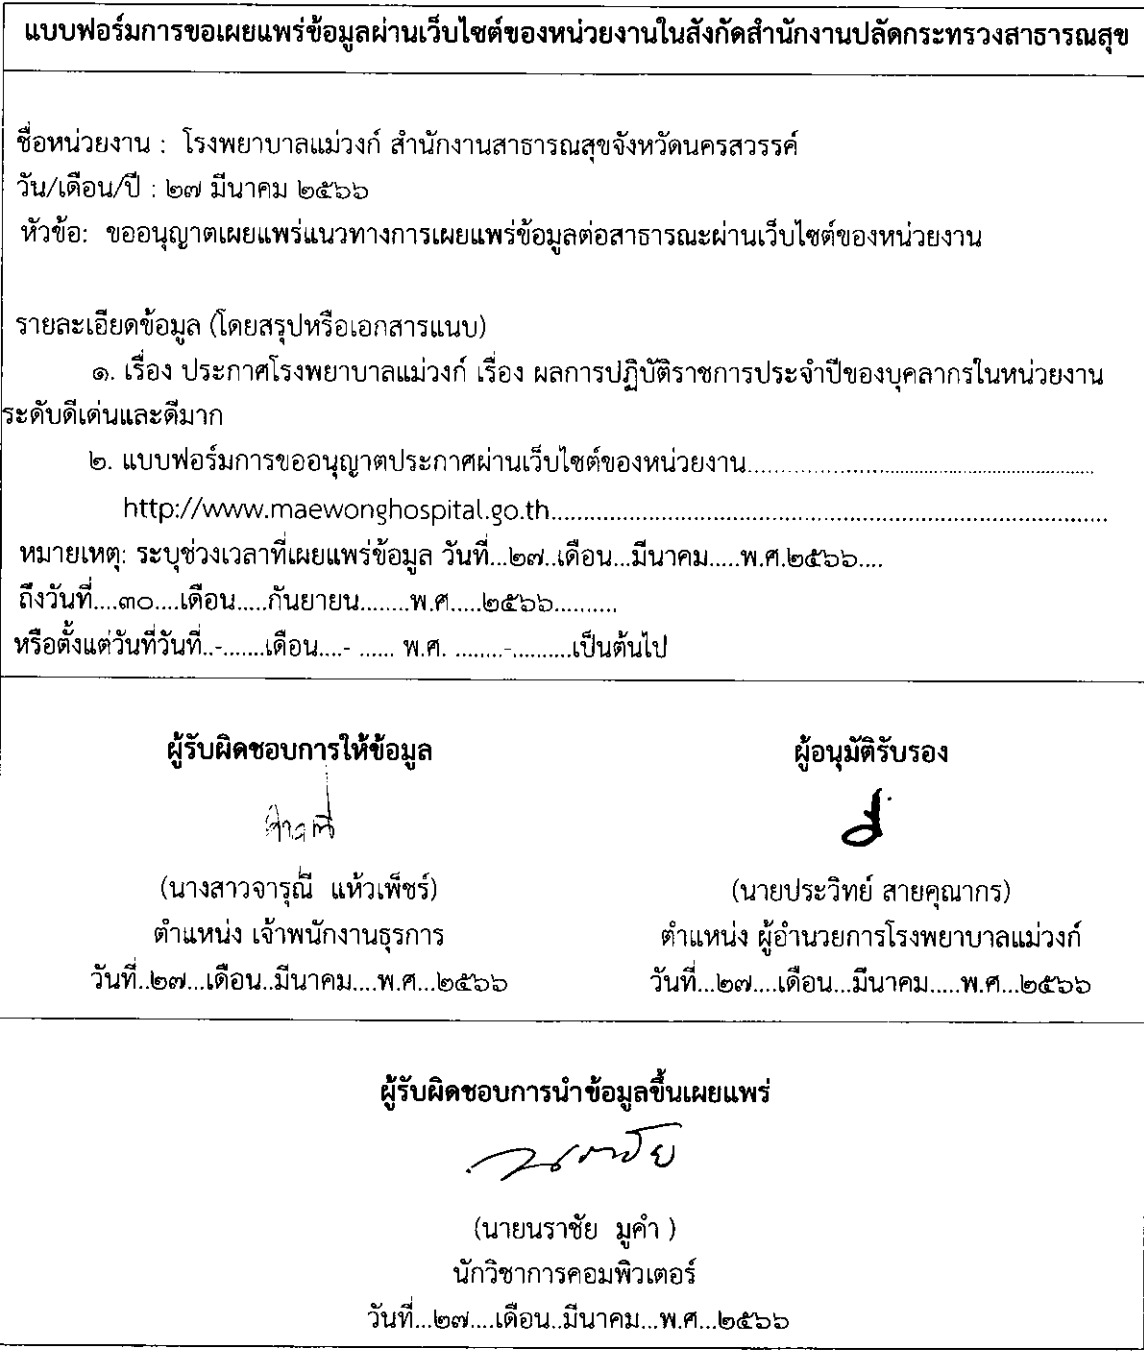 แบบฟอร์มการขอเผยแพร่ข้อมูลผ่านเว็บไซต์ของหน่วยงานในสังกัดสำนักงานปลัดกระทรวงสาธารณสุข
ชื่อหน่วยงาน : โรงพยาบาลแม่วงก์ สำนักงานสาธารณสุขจังหวัดนครสวรรค์
วัน/เดือน/ปี : ๒๗ มีนาคม ๒๕๖๖
หัวข้อ: ขออนุญาตเผยแพร่แนวทางการเผยแพร่ข้อมูลต่อสาธารณะผ่านเว็บไซต์ของหน่วยงาน
รายละเอียดข้อมูล (โดยสรุปหรือเอกสารแนบ)
๑. เรื่อง ประกาศโรงพยาบาลแม่วงก์ เรื่อง ผลการปฏิบัติราชการประจำปีของบุคลากรในหน่วยงาน
ระดับดีเด่นและดีมาก
๒. แบบฟอร์มการขออนุญาตประกาศผ่านเว็บไซต์ของหน่วยงาน..........................................................
http://www.maewonghospital.go.th..........................................................................................
หมายเหตุ: ระบุช่วงเวลาที่เผยแพร่ข้อมูล วันที่...๒๗..เดือน...มีนาคม.....พ.ศ.๒๕๖๖....
ถึงวันที่....๓๐....เดือน.....กันยายน........พ.ศ.....๒๕๖๖..........
หรือตั้งแต่วันที่วันที่..-.......เดือน....- ...... พ.ศ. ........-..........เป็นต้นไป
ผู้รับผิดชอบการให้ข้อมูล
ผู้อนุมัติรับรอง
(นางสาวจารุณี แห้วเพ็ชร์)
(นายประวิทย์ สายคุณากร)
ตำแหน่ง เจ้าพนักงานธุรการ
ตำแหน่ง ผู้อำนวยการโรงพยาบาลแม่วงก์
วันที่..๒๗...เดือน..มีนาคม....พ.ศ...๒๕๖๖
วันที่...๒๗....เดือน...มีนาคม.....พ.ศ...๒๕๖๖
ผู้รับผิดชอบการนำข้อมูลขึ้นเผยแพร่
นราชัย
(นายนราชัย มูคำ )
นักวิชาการคอมพิวเตอร์
วันที่...๒๗....เดือน..มีนาคม...พ.ศ...๒๕๖๖